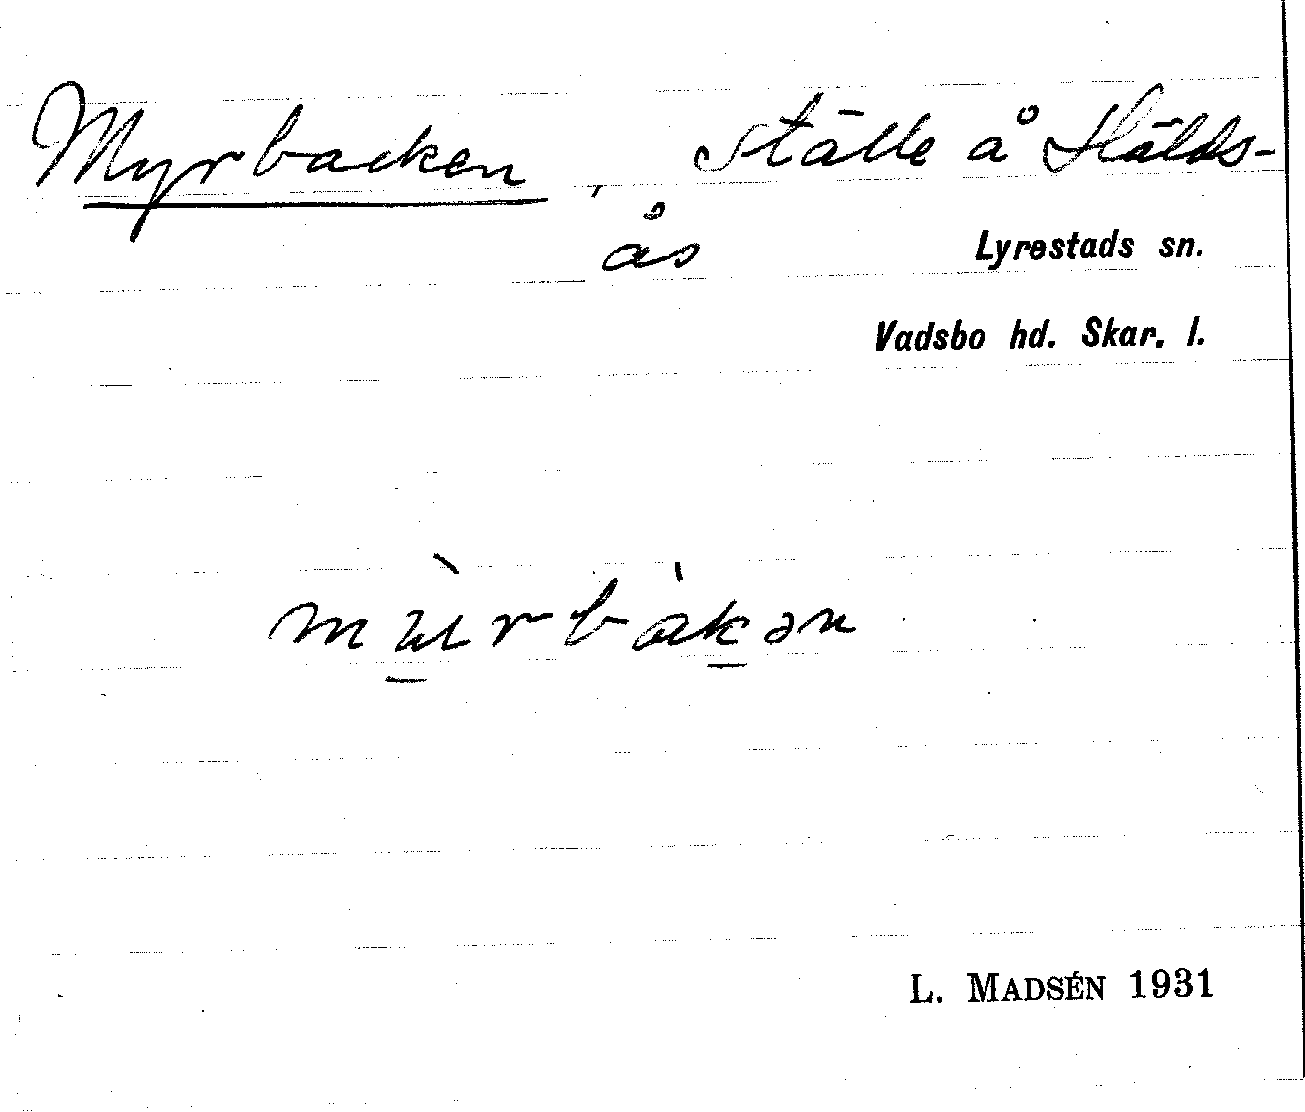 Myrbacken, Ställe å Hälds-
ås
Lyrestads sn.
Vadsbo hd. Skar. l.
mùrbàkən
L. MADSÉN 1931